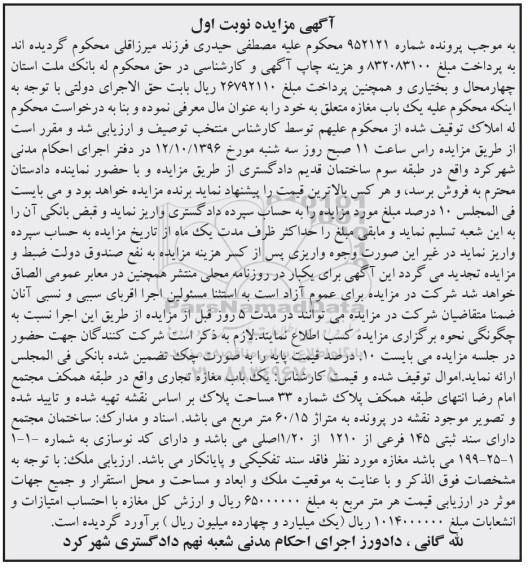 آگهی مزایده نوبت اول
به موجب پرونده شماره ۹۵۲۱۲۱ محکوم علیه مصطفی حیدری فرزند میرزاقلی محکوم گردیده اند
به پرداخت مبلغ ۸۳۲۰۸۳۱۰۰ و هزینه چاپ آگهی و کارشناسی در حق محکوم له بانک ملت استان
چهارمحال و بختیاری و همچنین پرداخت مبلغ ۲۶۷۹۲۱۱۰ ریال بابت حق الاجرای دولتی با توجه به
اینکه محکوم علیه یک باب مغازه متعلق به خود را به عنوان مال معرفی نموده و بنا به درخواست محکوم
له املاک توقیف شده از محکوم علیهم توسط کارشناس منتخب توصیف و ارزیابی شد و مقرر است
از طریق مزایده راس ساعت ۱۱ صبح روز سه شنبه مورخ ۱۲/۱۰/۱۳۹۶ در دفتر اجرای احکام مدنی
شهرکرد واقع در طبقه سوم ساختمان قدیم دادگستری از طریق مزایده و با حضور نماینده دادستان
محترم به فروش برسد، و هر کس بالاترین قیمت را پیشنهاد نماید برنده مزایده خواهد بود و می بایست
فی المجلس ۱۰ درصد مبلغ مورد مزایده را به حساب سپرده دادگستری واریز نماید و قبض بانکی آن را
به این شعبه تسلیم نماید و مابقی مبلغ را حداکثر ظرف مدت یک ماه از تاریخ مزایده به حساب سپرده
واریز نماید در غیر این صورت وجوه واریزی پس از کسر هزینه مزایده به نفع صندوق دولت ضبط و
مزایده تجدید می گردد این آگهی برای یکبار در روزنامه محلی منتشر همچنین در معابر عمومی الصاق
خواهد شد شرکت در مزایده برای عموم آزاد است به استثنا مسئولین اجرا اقربای سببی و نسبی آنان
ضمنا متقاضیان شرکت در مزایده می توانند در مدت ۵ روز قبل از مزایده از طریق این اجرا نسبت به
چگونگی نحوه برگزاری مزایده کسب اطلاع نمایند.لازم به ذکر است شرکت کنندگان جهت حضور
در جلسه مزایده می بایست ۱۰ درصد قیمت پایه را به صورت چک تضمین شده بانکی فی المجلس
ارائه نماید.اموال توقیف شده و قیمت کارشناس: یک باب مغازه تجاری واقع در طبقه همکف مجتمع
امام رضا انتهای طبقه همکف پلاک شماره ۳۳ مساحت پلاک بر اساس نقشه تهیه شده و تایید شده
و تصویر موجود نقشه در پرونده به متراژ ۶۰/۱۵ متر مربع می باشد. اسناد و مدارک: ساختمان مجتمع
دارای سند ثبتی ۱۴۵ فرعی از ۱۲۱۰ از ۱/۲۰اصلی می باشد و دارای کد نوسازی به شماره ۱-۱-
۱-۲۵-۱۹۹ می باشد مغازه مورد نظر فاقد سند تفکیکی و پایانکار می باشد. ارزیابی ملک: با توجه به
مشخصات فوق الذکر و با عنایت به موقعیت ملک و ابعاد و مساحت و محل استقرار و جمیع جهات
موثر در ارزیابی قیمت هر متر مربع به مبلغ ۶۵۰۰۰۰۰۰ ریال و ارزش کل مغازه با احتساب امتیازات و
انشعابات مبلغ ۱۰۱۴۰۰۰۰۰۰ ریال (یک میلیارد و چهارده میلیون ریال ) برآورد گردیده است.
لله گانی ، دادورز اجرای احکام مدنی شعبه نهم دادگستری شهر کرد
ParsNamadData